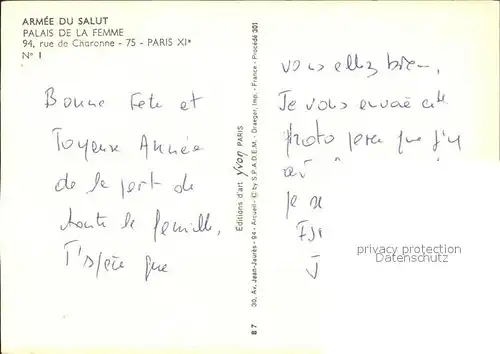 ARMÉE DU SALUT
PALAIS DE LA FEMME
94, rue de Charonne - 75 - PARIS XIe
N° 1
Bonne Fete et
Joyeuse Année
de la part de
toute la famille,
J'espère que
Editions d'art yvon PARIS
30, Av. Jean-Jaurès - 94 - Arcueil - © by S.P.A.D.E.M. - Draeger, Imp. - France - Procédé 301
87
vous allez bien,
Je vous envoie cette
photo parce que j'y
je
J
privacy protection
Ansichtskartenversand.com